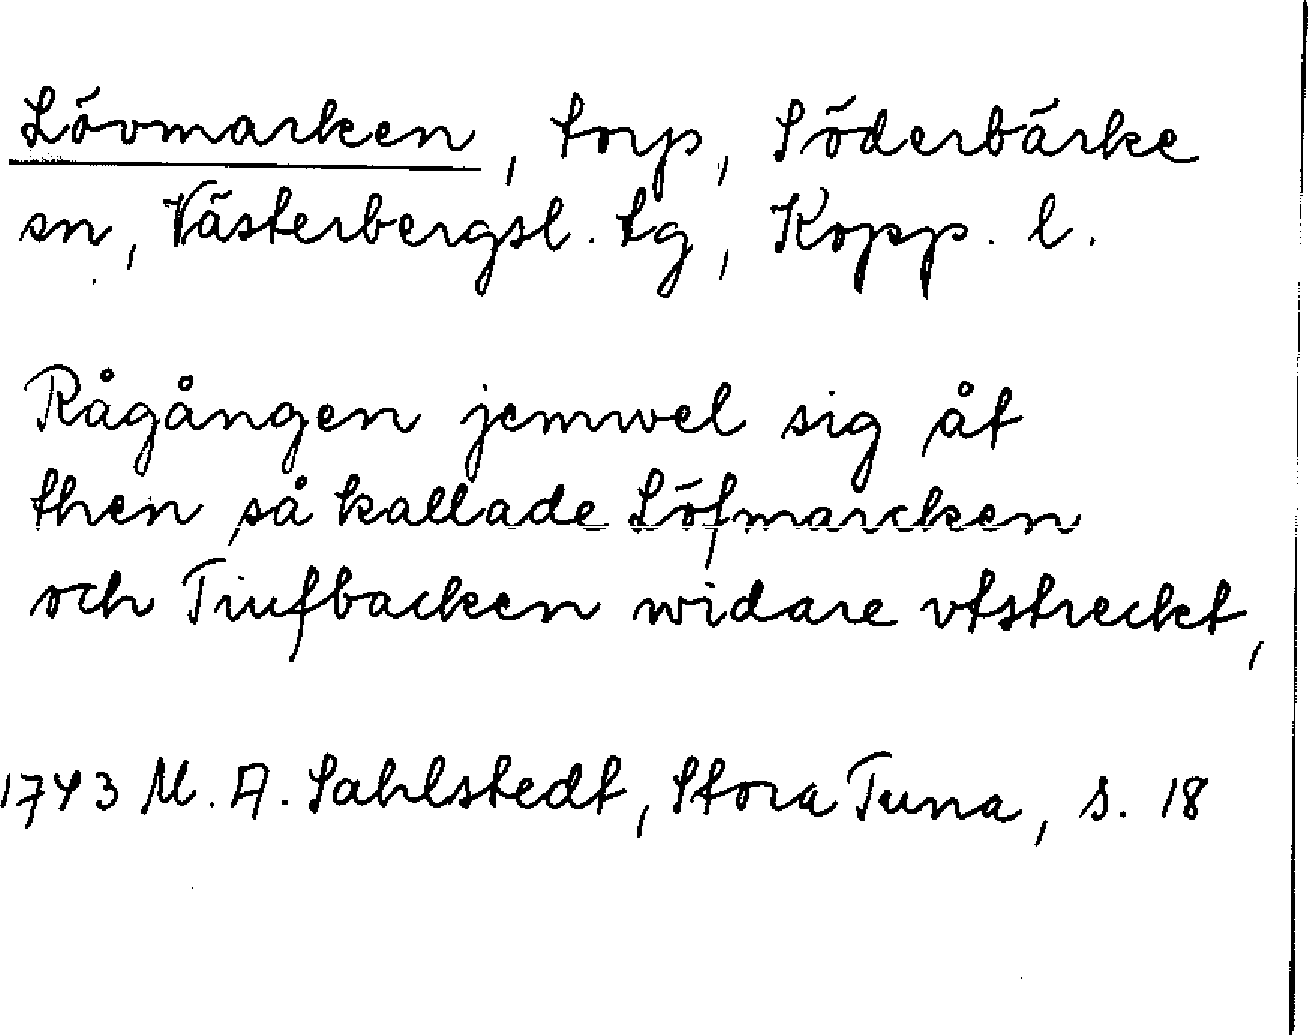 Lövmarken, torp, Söderbärke
sn, Västerbergsl. tg, Kopp. l.
Rågången jemwel sig åt
then så kallade Löfmarcken
och Tiufbacken widare vtstreckt,
1743 M. A. Sahlstedt, Stora Tuna, s. 18